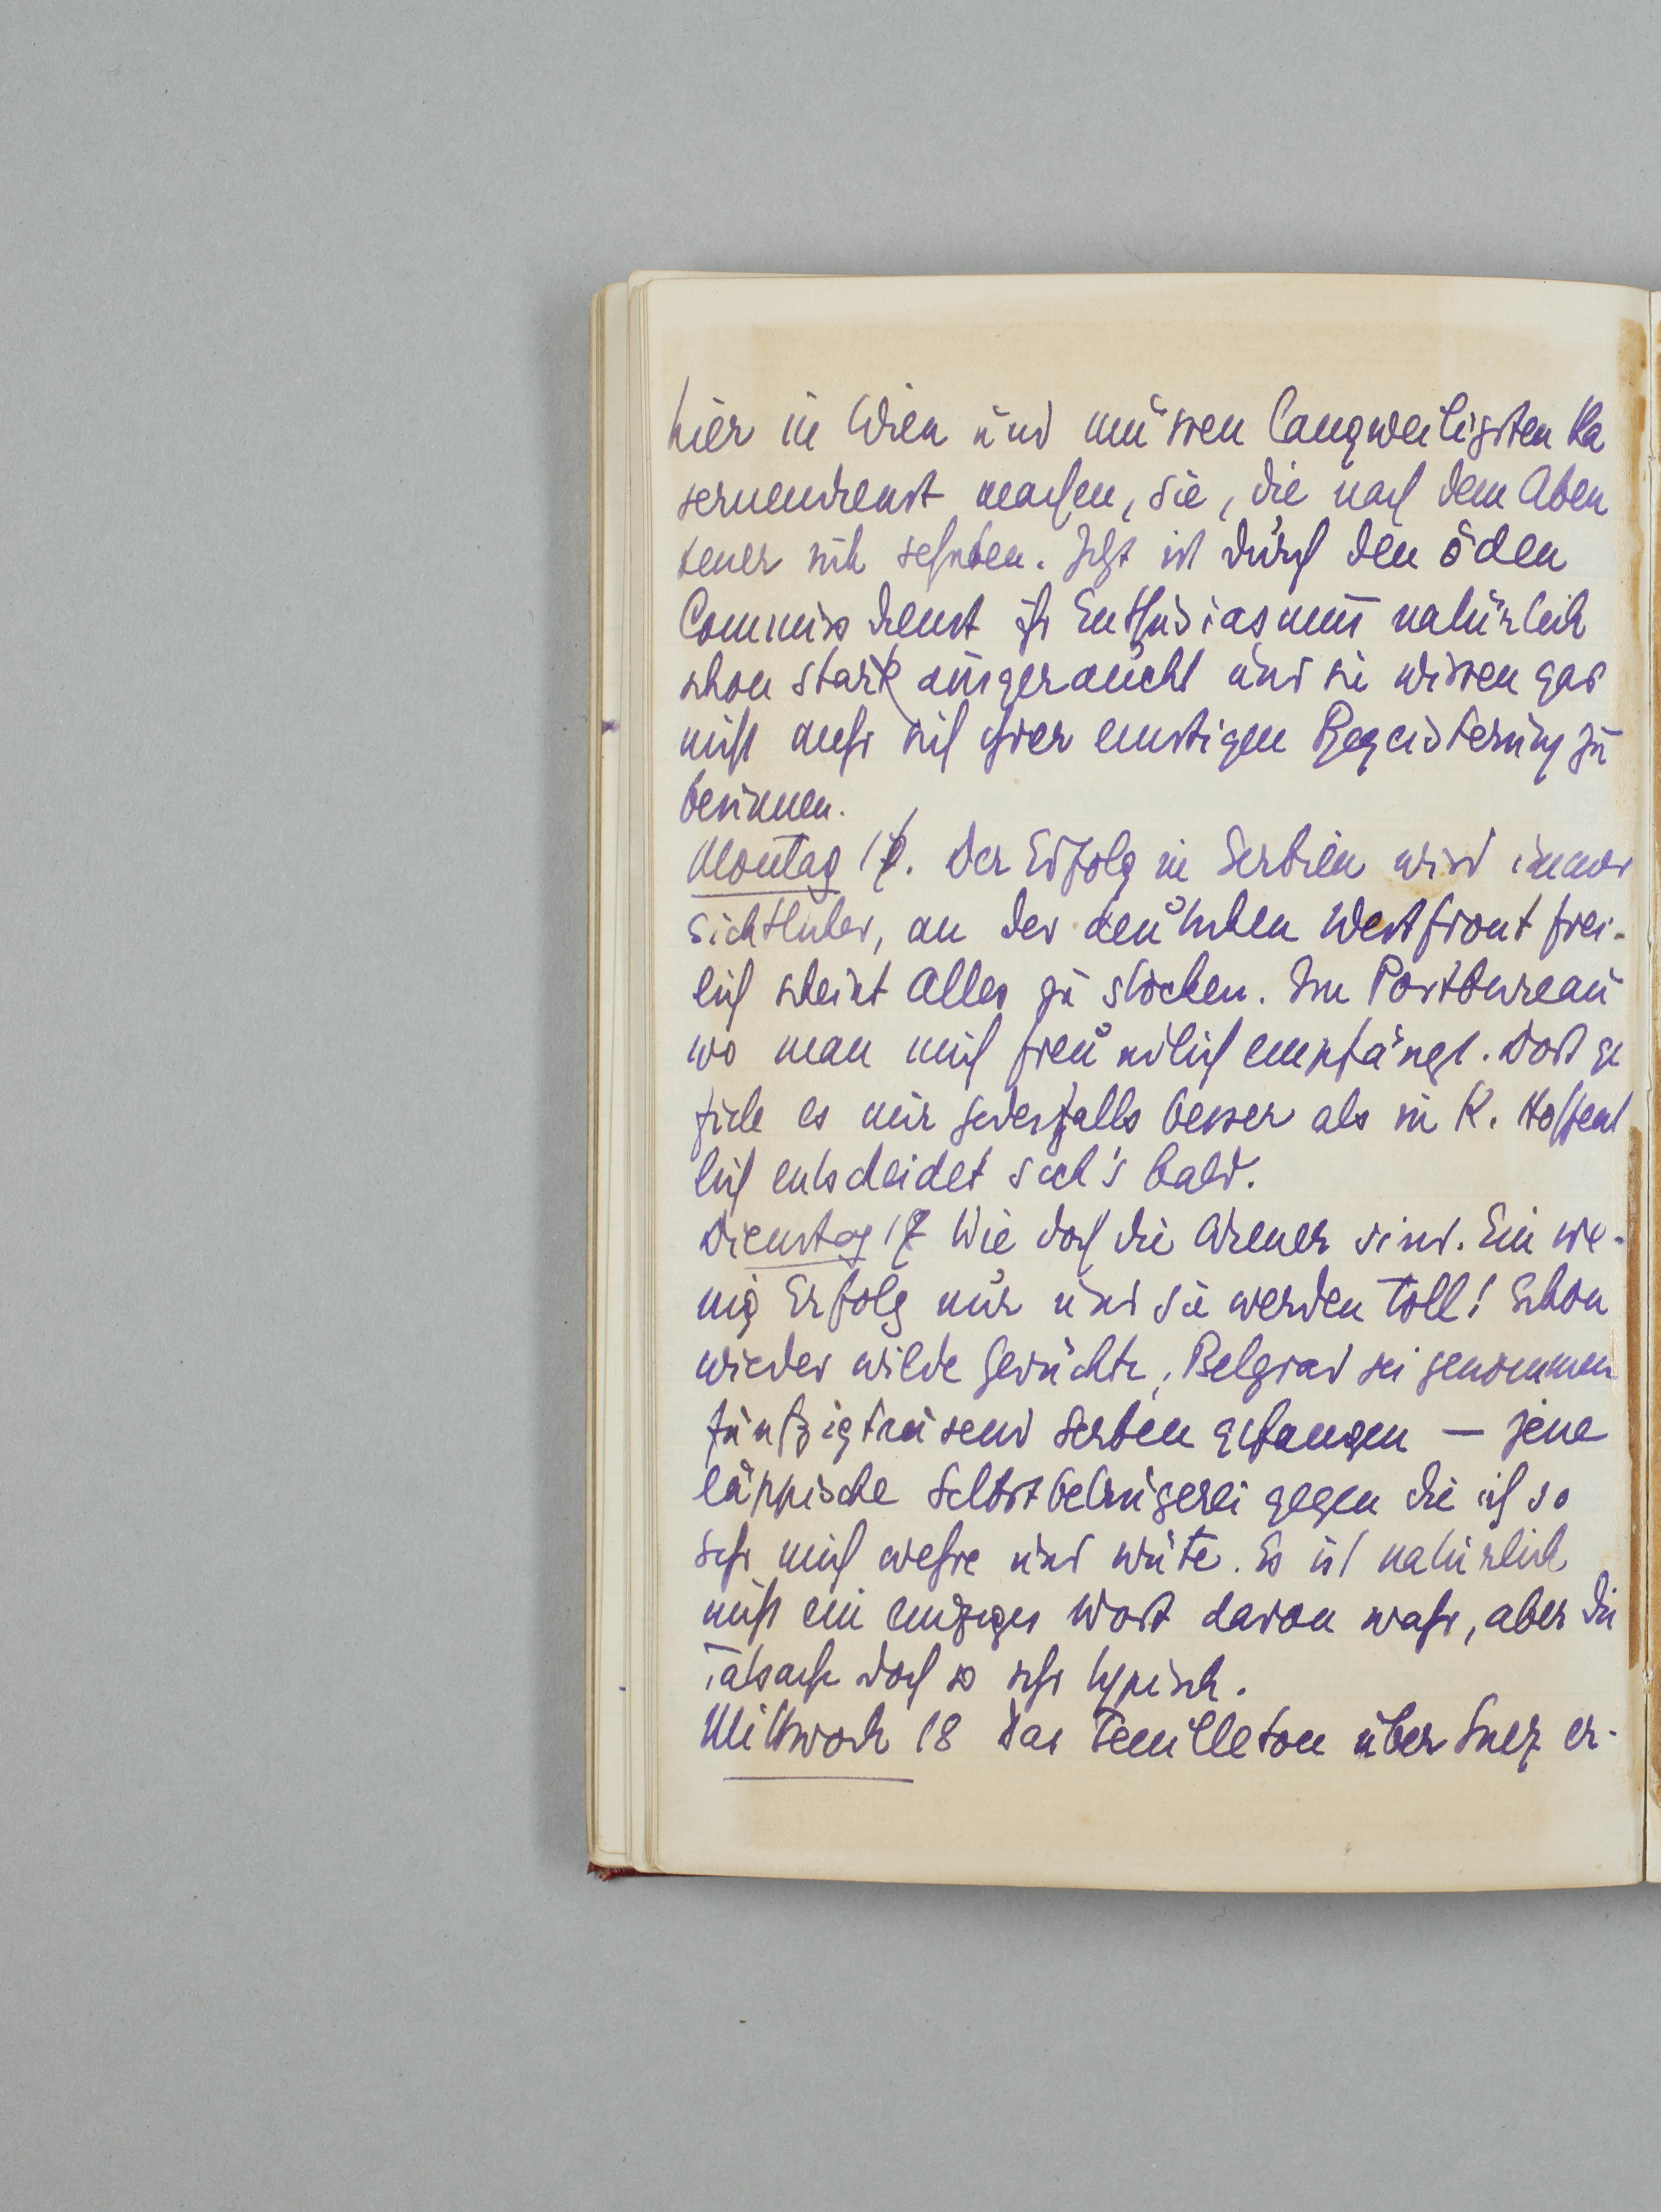 hier in Wien und müssen langweiligsten Ka
sernendienst machen, sie, die nach dem Aben
teuer sich sehnten. Jetzt ist durch den öden
Commissdienst ihr Enthusiasmus natürlich
schon stark ausgeraucht und sie wissen gar
nicht mehr sich ihrer einstigen Begeisterung zu
besinnen.
Montag 16. Der Erfolg in Serbien wird immer
sichtlicher, an der deutschen Westfront frei-
lich scheint Alles zu stocken. Im
wo man mich freundlich empfängt. Dort ge
fiele es mir jedesfalls besser als in K. Hoffent
lich entscheidet sich's bald.
Dienstag 17 Wie doch die Wiener sind. Ein we-
nig Erfolg nur und sie werden toll! Schon
wieder wilde Gerüchte, Belgrad sei genommen
fünfzigtausend Serben gefangen — jene
läppische Selbstbetrügerei gegen die ich so
sehr mich wehre und wüte. Es ist natürlich
nicht ein einziges Wort davon wahr, aber die
Tatsache doch so sehr typisch.
Mittwoch 18 Das Feuilleton über Suez er-